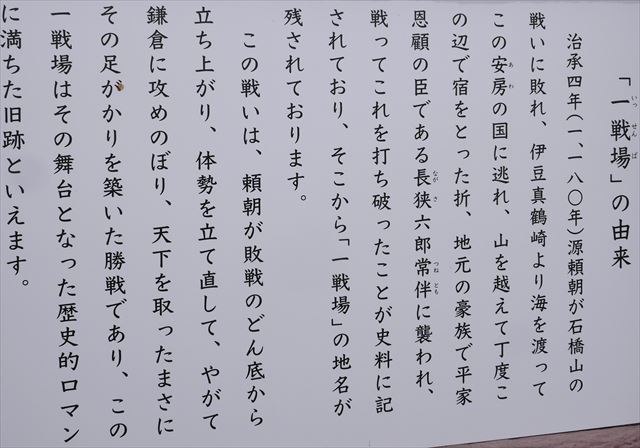 「一戦場」の由来
いっせんば
治承四年（一、一八〇年）源頼朝が石橋山の
戦いに敗れ、伊豆真鶴崎より海を渡って
この安房の国に逃れ、山を越えて丁度こ
あわ
の辺で宿をとった折、地元の豪族で平家
恩顧の臣である長狭六郎常伴に襲われ、
ながさ
つねとも
戦ってこれを打ち破ったことが史料に記
されており、そこから「一戦場」の地名が
残されております。
この戦いは、頼朝が敗戦のどん底から
立ち上がり、体勢を立て直して、やがて
鎌倉に攻めのぼり、天下を取ったまさに
その足がかりを築いた勝戦であり、この
一戦場はその舞台となった歴史的ロマン
に満ちた旧跡といえます。